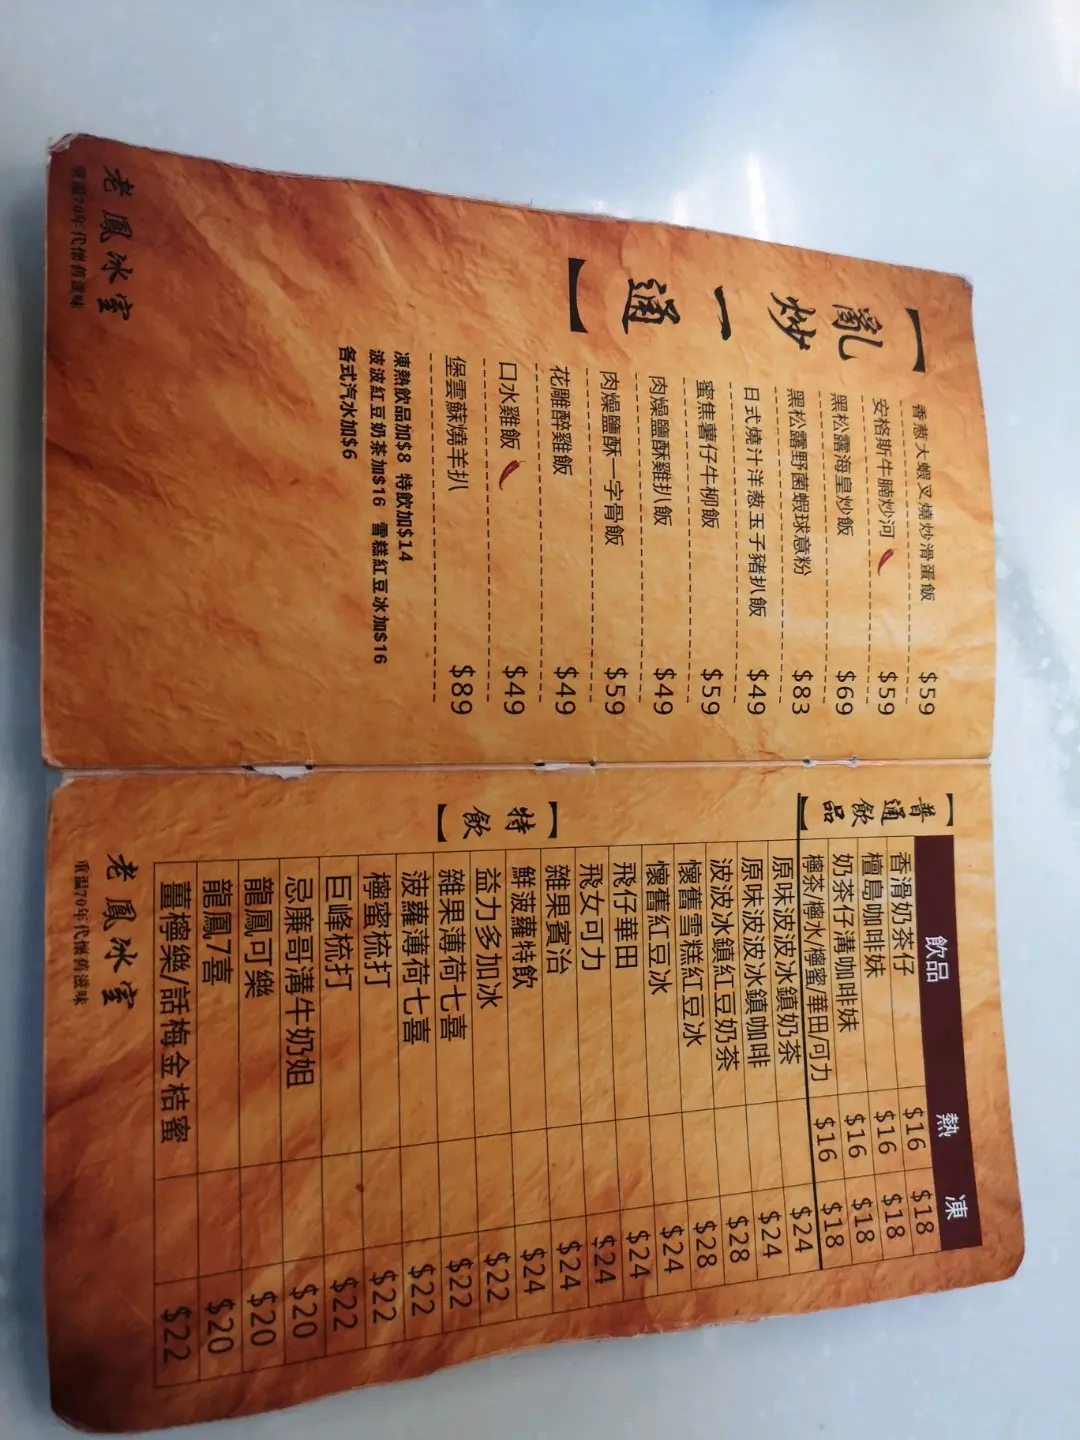 【亂炒一通】
香葱大蝦叉燒炒滑蛋飯 $59
安格斯牛腩炒河 $59
黑松露海皇炒飯 $69
黑松露野菌蝦球意粉 $83
日式燒汁洋葱玉子豬扒飯 $49
蜜焦薯仔牛柳飯 $59
肉燥鹽酥雞扒飯 $49
肉燥鹽酥一字骨飯 $59
花雕醉雞飯 $49
口水雞飯 $49
堡雲蘇燒羊扒 $89
凍熱飲品加$8 特飲加$14
波波紅豆奶茶加$16 雪糕紅豆冰加$16
各式汽水加$6
老鳳冰室
重温70年代懷舊滋味
飲品 熱 凍
【普通飲品】
香滑奶茶仔 $16 $18
檀島咖啡妹 $16 $18
奶茶仔溝咖啡妹 $16 $18
檸茶/檸水/檸蜜/華田/可力 $16 $18
【特飲】
原味波波冰鎮奶茶 $24
原味波波冰鎮咖啡 $24
波波冰鎮紅豆奶茶 $28
懷舊雪糕紅豆冰 $28
懷舊紅豆冰 $24
飛仔華田 $24
飛女可力 $24
雜果賓治 $24
鮮菠蘿特飲 $24
益力多加冰 $22
雜果薄荷七喜 $22
菠蘿薄荷七喜 $22
檸蜜梳打 $22
巨峰梳打 $22
忌廉哥溝牛奶姐 $20
龍鳳可樂 $20
龍鳳7喜 $20
薑檸樂/話梅金桔蜜 $22
老鳳冰室
重温70年代懷舊滋味